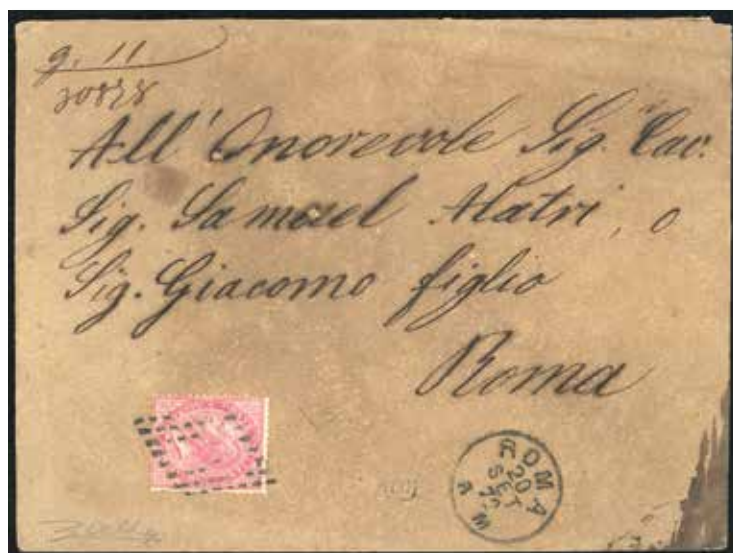 g. 11
30878
All' Onorevole Sig. Cav.
Sig. Samuel Alatri, o
Sig. Giacomo figlio
Roma
ROMA
20
SET